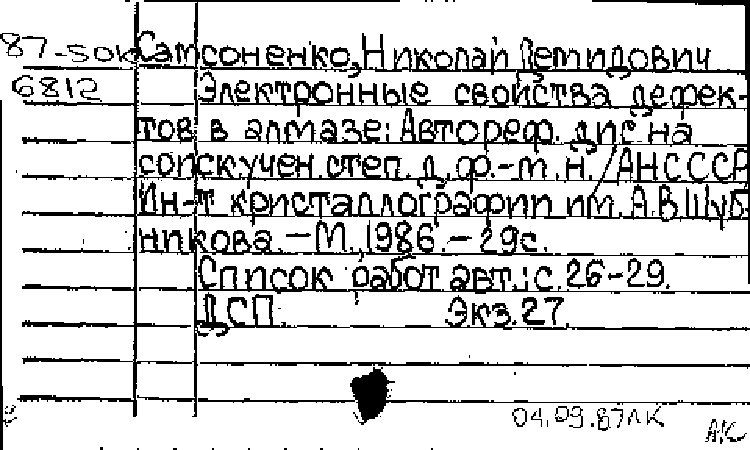 87-5ок Самсоненко, Николай Демидович
6812 Электронные свойства дефек-
тов в алмазе: Автореф. дис на
соиск.учен.степ. д.ф.-м.н. /АНСССР
Ин-т кристаллографии им. А.В Шуб-
никова. – М., 1986. – 29с.
Список работ авт.: с. 26-29.
ДСП. Экз. 27.
04.09.87